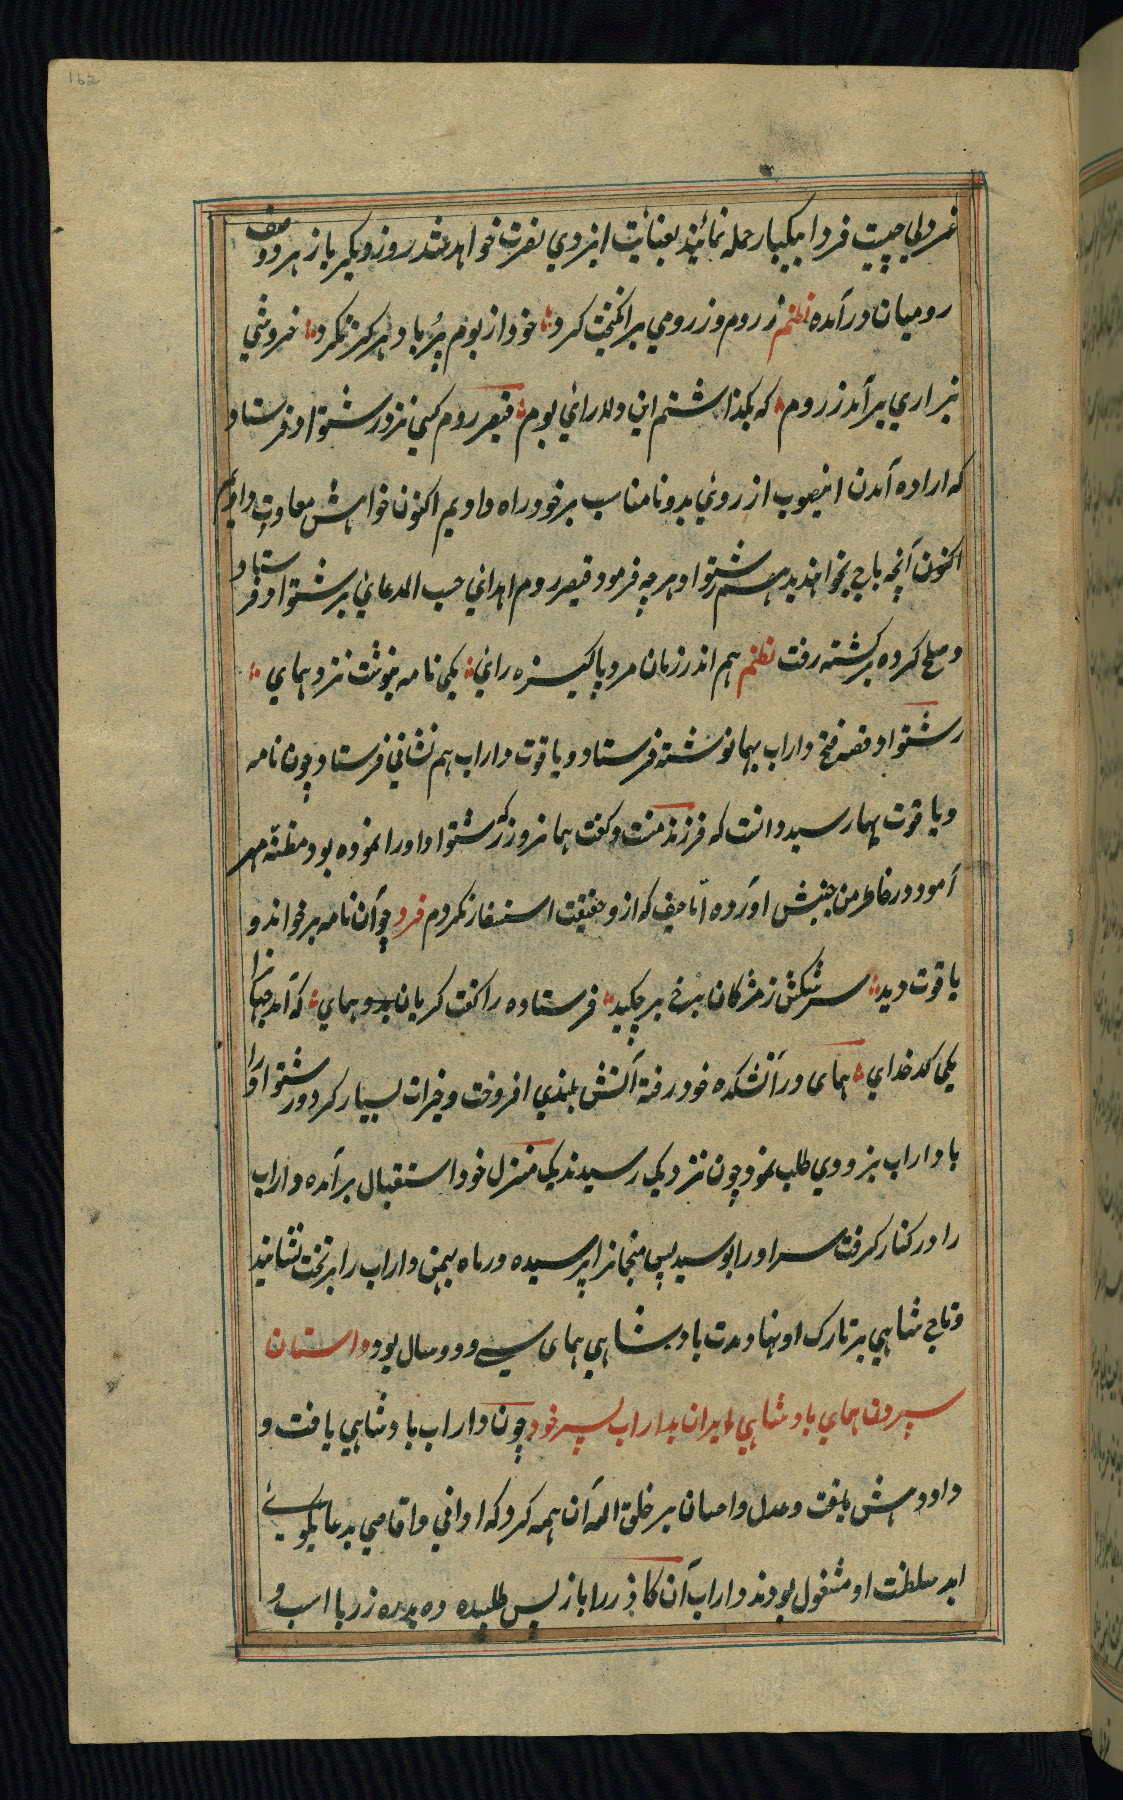 162
غم دلی چیست فردا بیکبار حمله نمائید بعنایت ایزدي نصرت خواهد شد روز دیگر باز هر دو صف
رومیان درآمده نظم ز روم و ز رومي برانگیخت گرد خود از بوم پر باد هرگز نکرد خروشي
بزاري برآمد ز روم که بگذاشتم این دلارائ بوم قیصر روم کسي نزد رشنواد فرستاد
که اراده آمدن اینصوب از روئ بد و نامناسب بر خود راه دادیم اکنون خواهش معاوت داریم
اکنون آنچه باج بخواهند بدهم رشنواد هرچه فرمود قیصر روم اهداي حسب المدعائ بر رشنواد فرستاد
و صلح کرده برگشته رفت نظم هم اندر زمان مرد پاکیزه رائ یکي نامه بنوشت نزد هماي
رشنواد قصه فتح داراب بهما نوشته فرستاد و یاقوت داراب هم نشاني فرستاد چون نامه
و یاقوت بهما رسید دانست که فرزند منست و گفت همانروز که رشنواد اورا نموده بود مظنّه مهر
آمود در خاطر من جنبش آورده امّا حیف که ازو حقیقت استفسار نکردم فرد چو آن نامه برخواند و
یاقوت دید سرشکش ز مژگان برخ بر چکید فرستاده را گفت گریان هماي که آمد جهان را
یکي کدخداي هماى در آتشکده خود رفته آتش بلندي افروخت و خیرات بسیار کرد و رشنواد را
با داراب بزودي طلب نمود چون نزدیک رسیدند یک منزل خود استقبال برآمده داراب
را در کنار گرفت سر او را بوسید پس منجمانرا پرسیده در ماه بهمن داراب را بر تخت نشانید
و تاج شاهي بر تارک او نهاد مدت بادشاهي هماى سي و دو سال بود داستان
سپردن هماي بادشاهي ایران بداراب پسر خود چون داراب بادشاهي یافت و
داد و دهش یافت و عدل و احسان بر خلق الله آن همه کرد که اداني و اقاصي بدعا گوئے
ابد سلطنت او مشغول بودند داراب آن گاذر را باز پس طلبیده ده بدره زر با اسب و